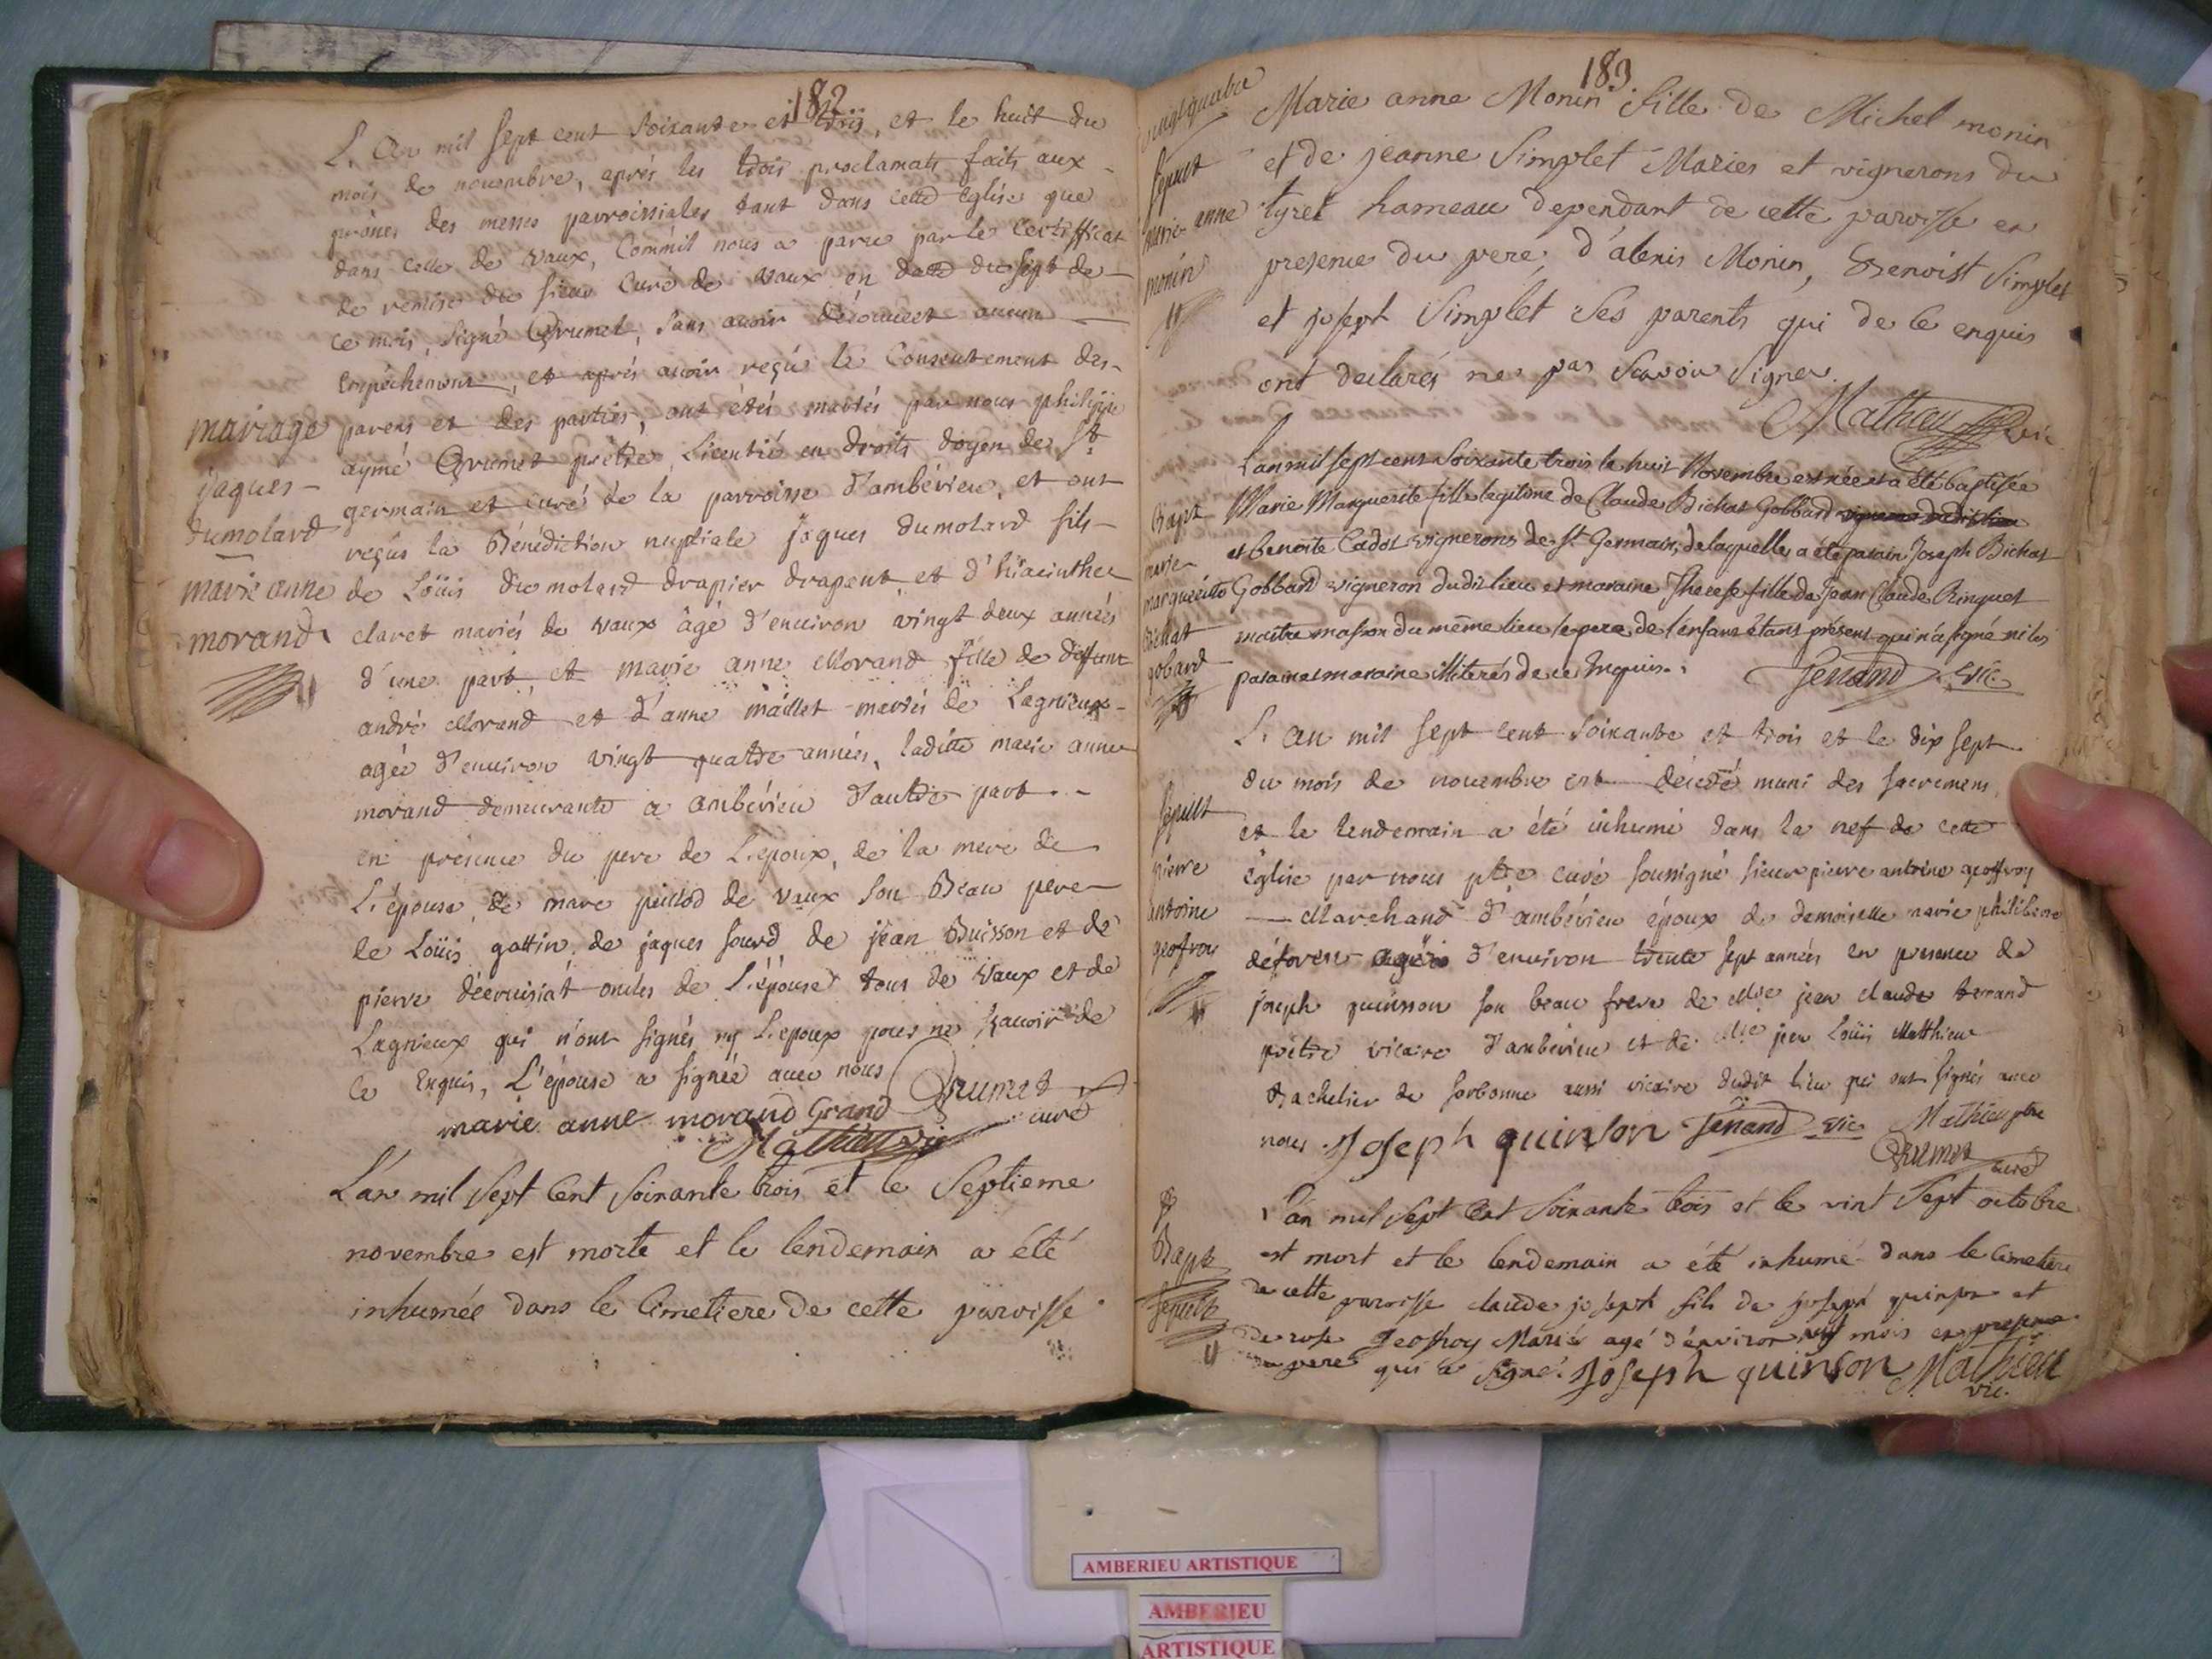 182
L'an mil sept cent soixante et trois, et le huit du
mois de nouembre, aprés les trois proclamats faits aux
prônes des messes parroissiales tant dans cette Eglise que
dans celle de vaux, Comm'il nous a paru par le certifficat
de remise du sieur Curé de vaux en date du sept de
ce mois, signé Grumet, sans auoir découuert aucun
Empechement, et aprés auoir reçu le Consentement des
parens et des parties, ont étés mariés par nous philippe
aymé Grumet prêtre Licentié en droits doyen de St
germain et curé de la parroisse d'ambérieu, et ont
reçus la Bénédiction nuptiale jaques dumolard fils
de Loüis dumolard drapier drapent et d'hïacinthe
claret mariés de vaux âgé d'enuiron vingt deux années
d'une part, et marie anne Morand fille de deffunt
andré Morand et d'anne maillet mariés de Lagnieux
agée d'enuiron vingt quatre années, laditte marie anne
morand demeurante a ambérieu d'autre part..
en présence du pere de L'epoux, de la mere de
L'épouse, de marc peillod de vaux son Beau pere
de Loüis gattin, de jaques sourd de jean Buisson et de
pierre décruisiat oncles de L'épouse tous de vaux et de
Lagnieux qui n'ont signés ny L'epoux pour ne sçauoir de
ce Enquis, L'épouse a signée auec nous Grumet
marie anne morand Grand curé
Mathieu vic
mariage
jaques
dumolard
marie anne
morand
L'an mil sept Cent soixante trois et le Septieme
novembre est morte et le lendemain a été
inhumée dans le Cimetiere de cette paroisse
183
Marie anne Monin fille de Michel monin
et de jeanne Simplet Maries et vignerons du
tyret hameau dependant de cette paroisse en
presence du pere, d'alexis Monin, Benoist Simplet
et joseph Simplet Ses parents qui de ce enquis
ont declarés ne pas Scavoir Signer.
Mathieu vic
sepult
marie anne
monin
L'an mil sept cent soixante trois le huit Novembre est née et a été baptisée
Marie Marguerite fille legitime de Claude Bichat Gobbard
et benoite Cadot vignerons de St Germain, de laquelle a été parain Joseph Bichat
Gobbard vigneron dudit lieu et maraine Therese fille de Jean Claude Ringuet
maître masson du même lieu le pere de l'enfant étant présent qui n'a signé ni les
parain et maraine illiterés de ce Enquis.
Tenand vic
Bapt
marie
marguerite
Bichat
gobard
L'an mil sept cent soixante et trois et le dix sept
du mois de nouembre est décedé muni des sacremens
et le lendemain a été inhumé dans la nef de cette
église par nous ptre curé soussigné sieur pierre antoine geoffroy
Marchand d'ambérieu époux de demoiselle marie philiberte
d'enuiron trente sept années en presence de
joseph quinsson son beau frere de Mre jean claude tenand
prêtre vicaire d'ambérieu et de Mre jean Loüis Matthieu
Bachelier de sorbonne aussi vicaire dudit lieu qui ont signés auec
nous. Joseph quinson Tenand vic Mathieu ptre
Grumet curé
sepult
pierre
antoine
geoffroy
L'an mil sept Cent Soixante trois et le vint Sept octobre
est mort et le lendemain a été inhumé dans le Cimetiere
de cette paroisse claude joseph fils de joseph quinson et
de rose geoffroy Mariés agé d'environ mois en presence
du pere qui a signé. Joseph quinson Mathieu
vic.
Bapt
sepult
AMBERIEU ARTISTIQUE
AMBERIEU
ARTISTIQUE